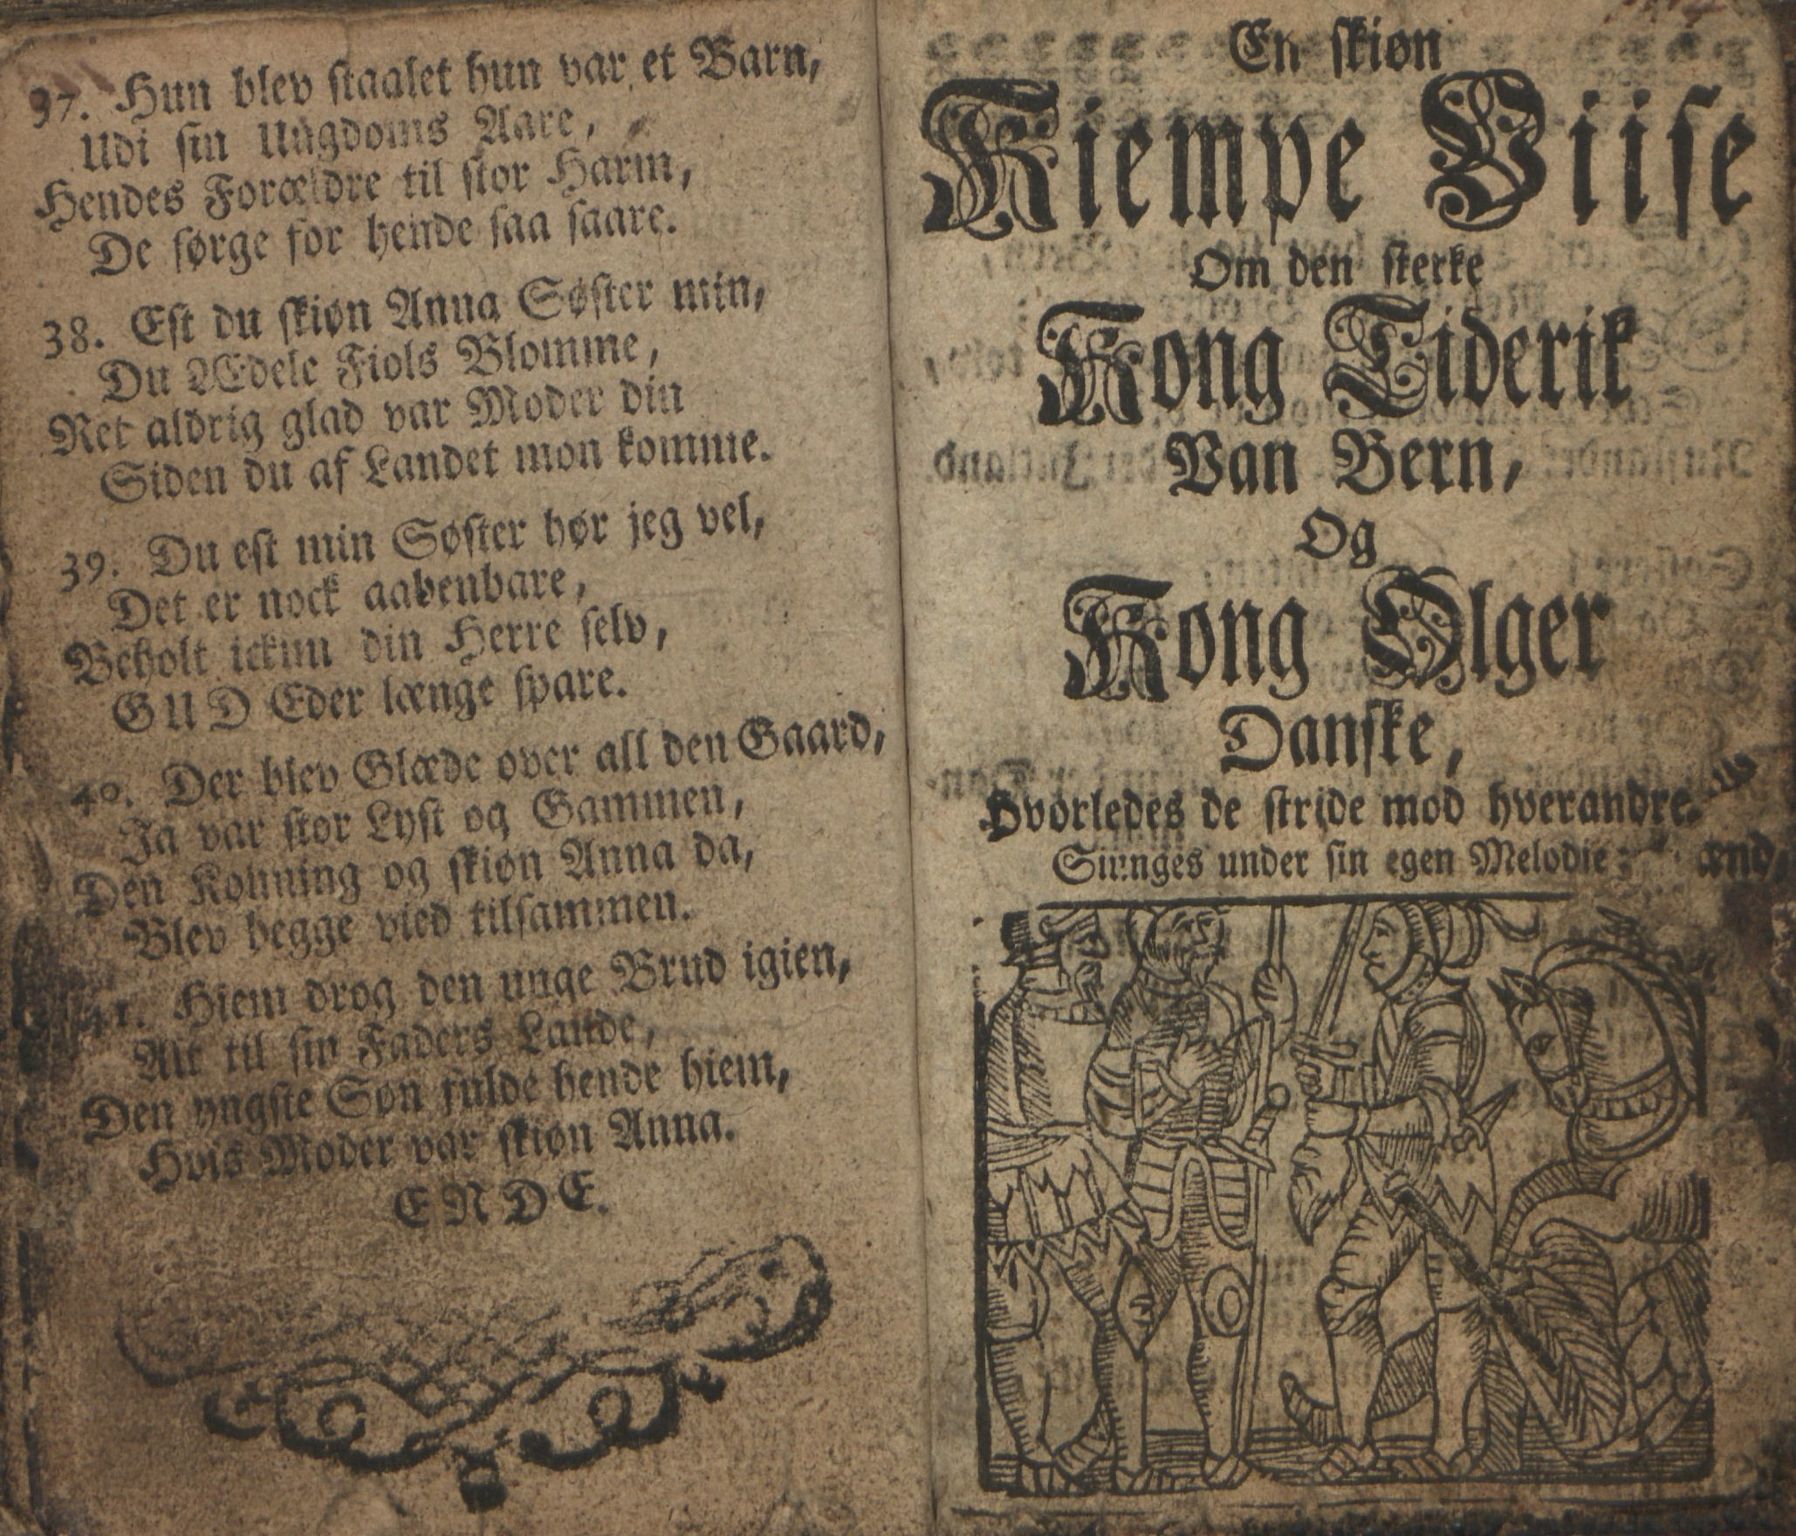 37. Hun blev staalet hun var et Barn,
Udi sin Ungdoms Aare,
Hendes Forældre til stor Harm,
De sørge for hende saa saare.
38. Est du skiøn Anna Søster min,
Du Ædele Fiols Blomme,
Ret aldrig glad var Moder din
Siden du af Landet mon komme.
39. Du est min Søster hør jeg vel,
Det er nock aabenbare,
Beholt ickun din Herre selv,
GUD Eder længe spare.
40. Der blev Glæde over all den Gaard,
Ja var stor Lyst og Gammen,
Den Konning og skiøn Anna da,
Blev begge vied tilsammen.
41. Hiem drog den unge Brud igien,
Alt til sin Faders Lande,
Den yngste Søn fulde hende hiem,
Hvis Moder var skiøn Anna.
ENDE.
En skiøn
Kiempe Viise
Om den sterke
Kong Tiderik
Van Bern,
Og
Kong Olger
Danske,
Hvorledes de stride mod hverandre.
Siunges under sin egen Melodie:
ænd,